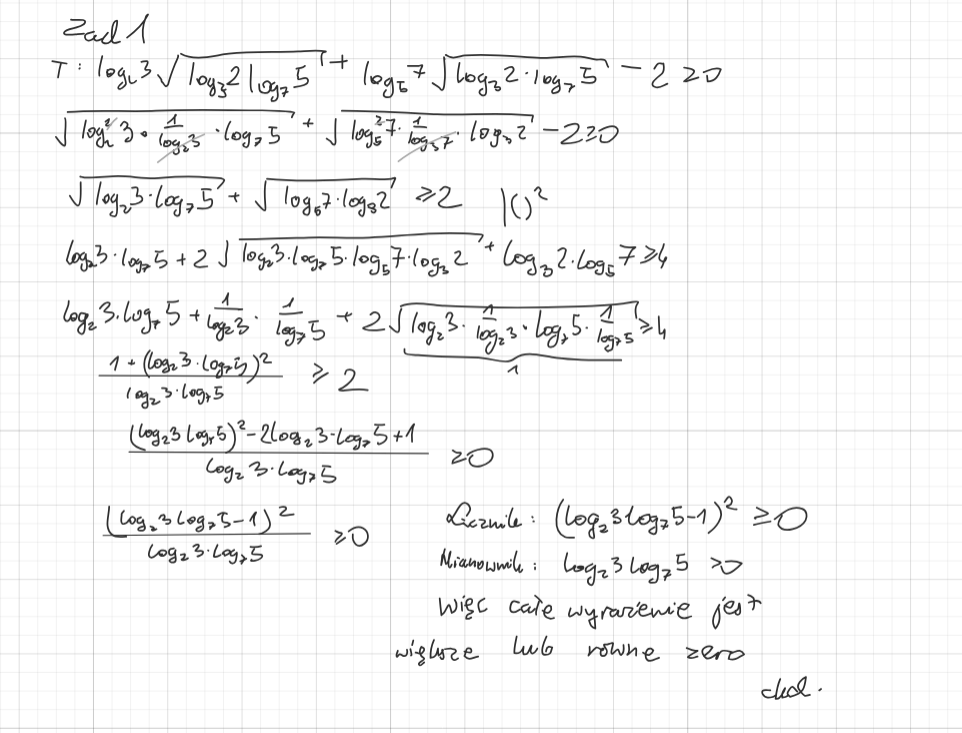 Zad 1
T: log₂3√(log₃2 log₇5) + log₅7√(log₃2·log₇5) - 2 ≥0
√(log₂²3 · 1/log₂3 · log₇5) + √(log₅²7 · 1/log₅7 · log₃2) - 2≥0
√(log₂3·log₇5) + √(log₅7·log₃2) ≥2 |()²
log₂3·log₇5 + 2√(log₂3·log₇5·log₅7·log₃2) + log₃2·log₅7≥4
log₂3·log₇5 + 1/log₂3 · 1/log₇5 + 2√(log₂3 · 1/log₂3 · log₇5 · 1/log₇5) ≥4
1
(1 + (log₂3·log₇5)²)/(log₂3·log₇5) ≥ 2
((log₂3 log₇5)² - 2log₂3·log₇5 + 1)/(log₂3·log₇5) ≥0
((log₂3 log₇5 - 1)²)/(log₂3·log₇5) ≥0
Licznik: (log₂3 log₇5 - 1)² ≥0
Mianownik: log₂3 log₇5 >0
Więc całe wyrażenie jest
większe lub równe zero
ckd.